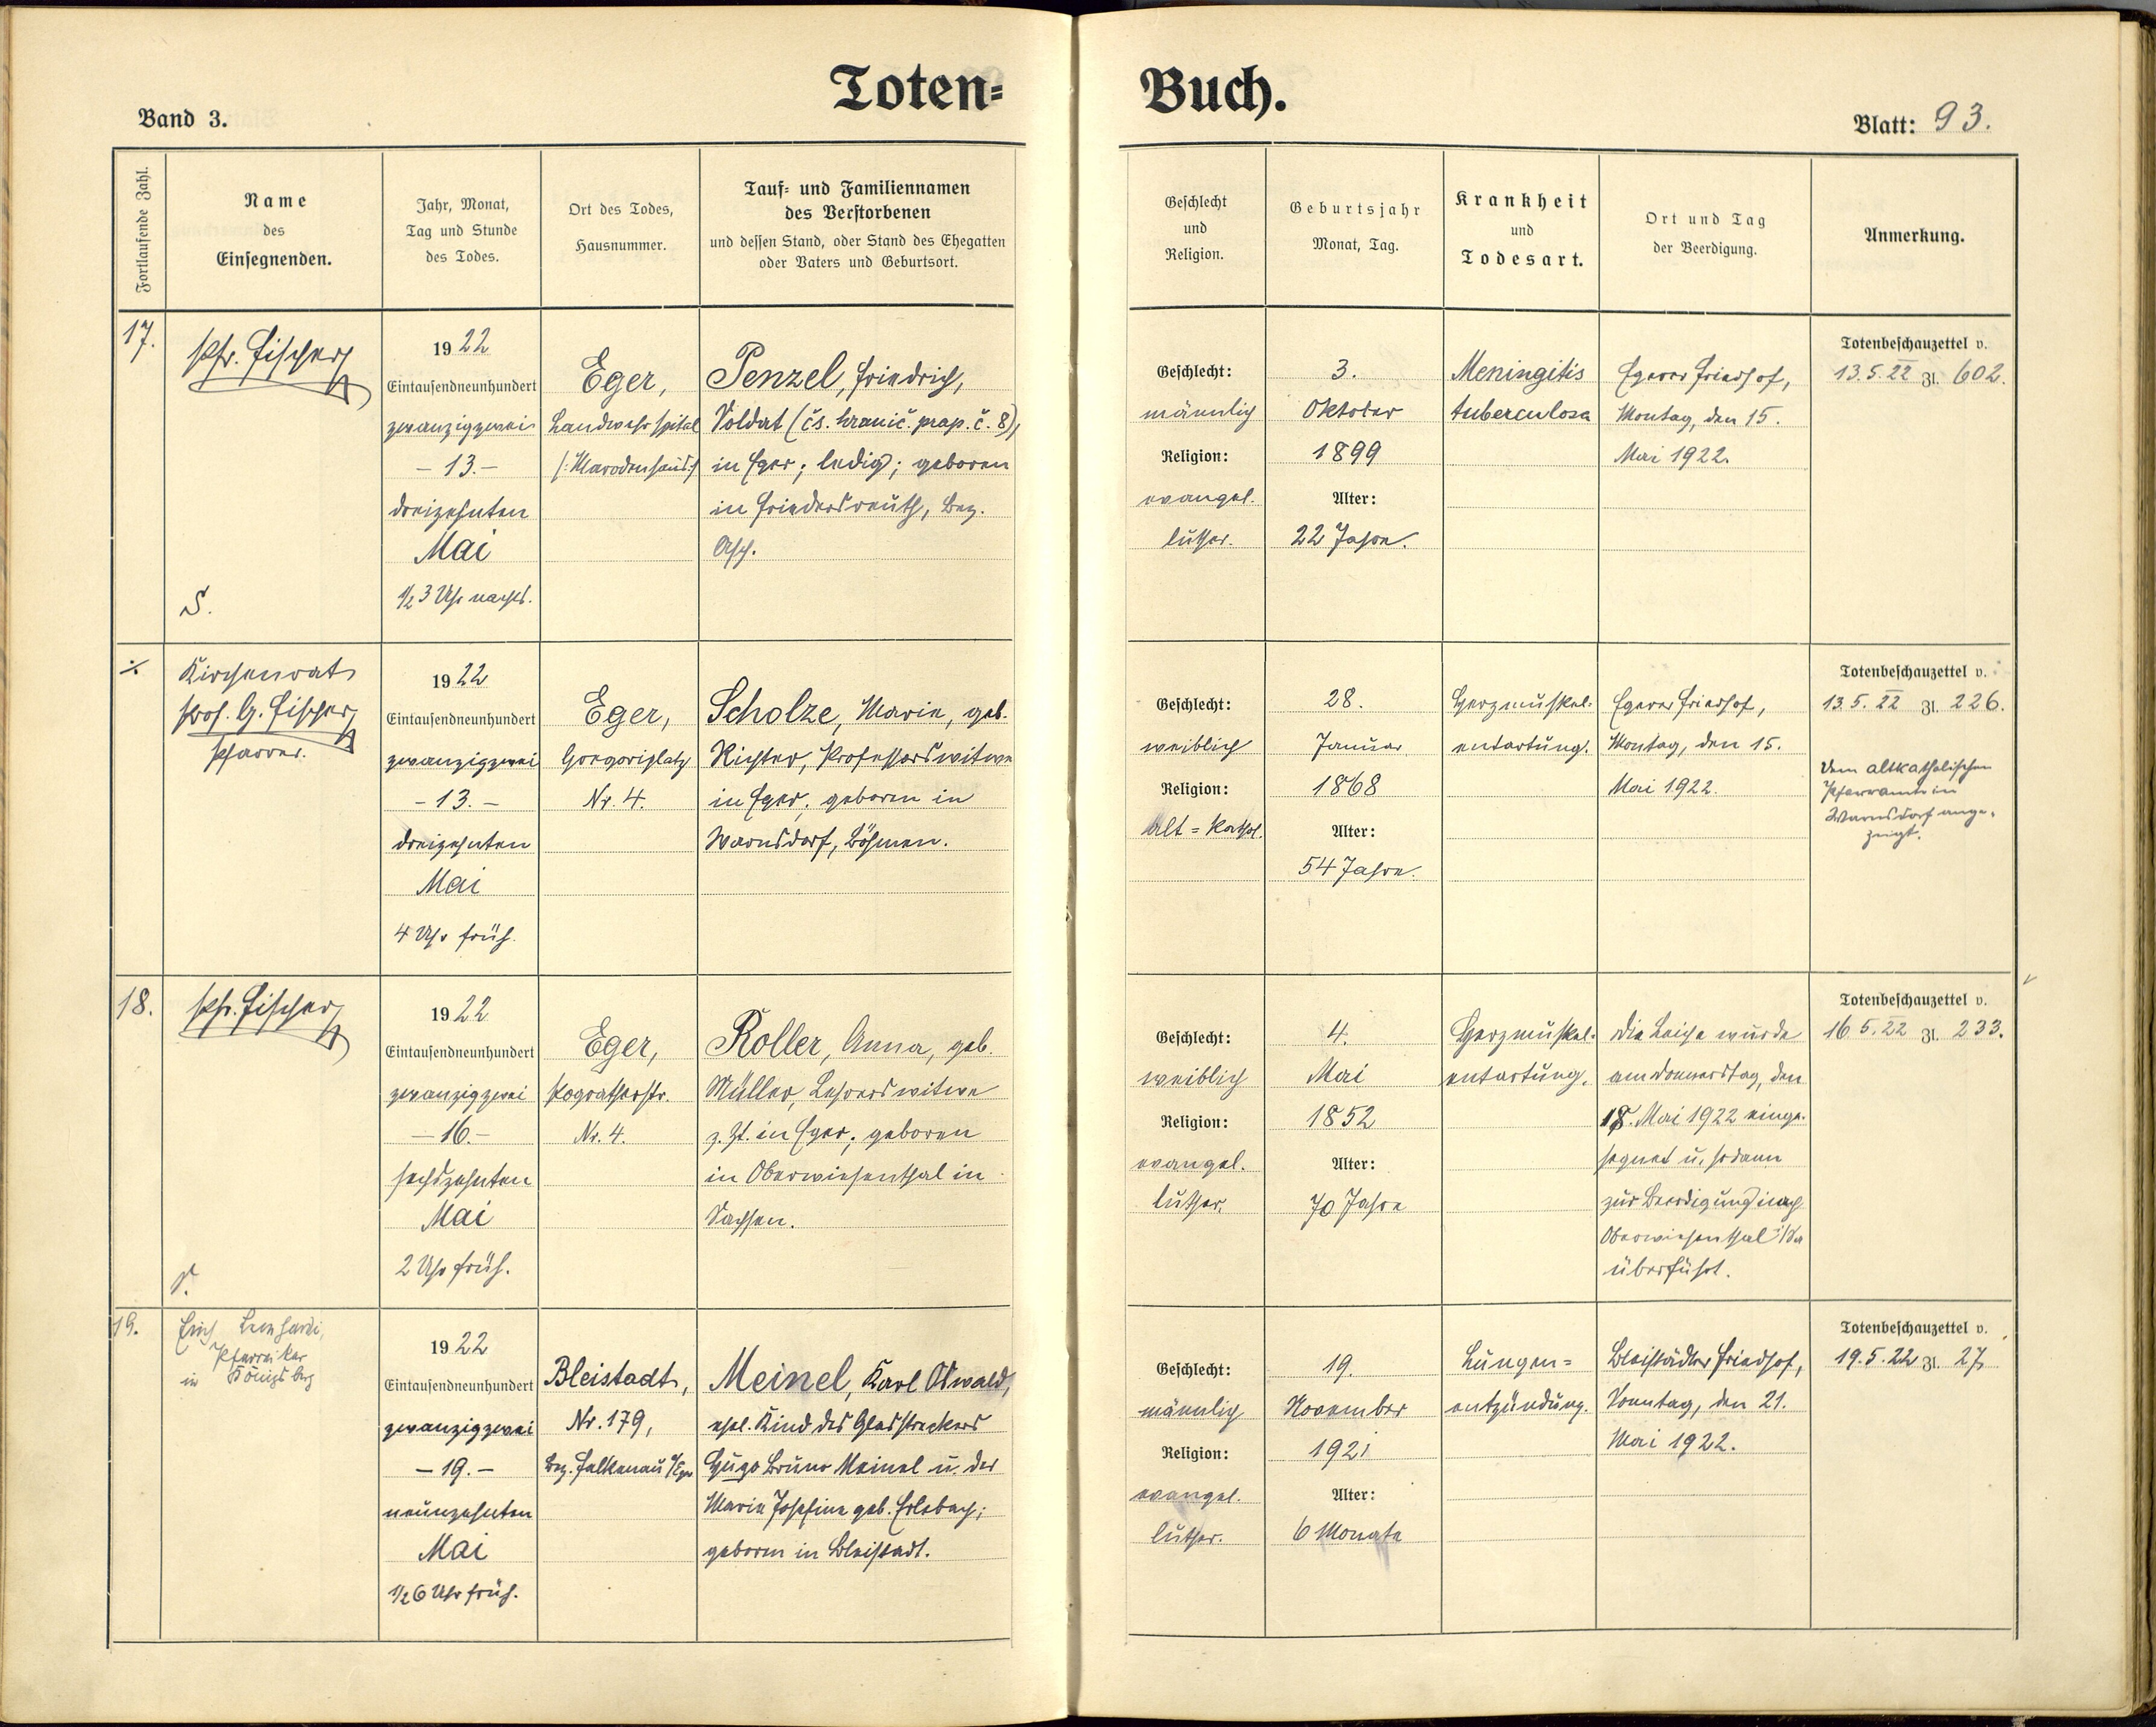 Toten=
Buch.
Band 3.
Blatt: 93.
Fortlaufende Zahl.
Name
des
Einsegnenden.
Jahr, Monat,
Tag und Stunde
des Todes.
Ort des Todes,
Hausnummer.
Tauf= und Familiennamen
des Verstorbenen
und dessen Stand, oder Stand des Ehegatten
oder Vaters und Geburtsort.
Geschlecht
und
Religion.
Geburtsjahr
Monat, Tag.
Krankheit
und
Todesart.
Ort und Tag
der Beerdigung.
Anmerkung.
17.
Pfr. Fischer
S.
1922
Eintausendneunhundert
zwanzigzwei
- 13. -
dreizehnten
Mai
1/2 3 Uhr nachts.
Eger,
Landwehrspital
/:Marodenhaus:/
Penzel, Friedrich,
Soldat (čs. hranič. prap. č. 8),
in Eger; ledig; geboren
in Friedersreuth, Bez.
Asch.
Geschlecht:
männlich
Religion:
evangel.
luther.
3.
Oktober
1899
Alter:
22 Jahre.
Meningitis
tuberculosa
Egerer Friedhof,
Montag, den 15.
Mai 1922.
Totenbeschauzettel v.
13.5.22 Zl. 602.
./.
Kirchenrat
Prof. G. Fischer
Pfarrer.
1922
Eintausendneunhundert
zwanzigzwei
- 13. -
dreizehnten
Mai
4 Uhr früh.
Eger,
Gregoriplatz
Nr. 4.
Scholze, Marie, geb.
Richter, Professorswitwe
in Eger; geboren in
Warnsdorf, Böhmen.
Geschlecht:
weiblich
Religion:
alt=kathol.
28.
Januar
1868
Alter:
54 Jahre.
Herzmuskel-
entartung.
Egerer Friedhof,
Montag, den 15.
Mai 1922.
Totenbeschauzettel v.
13.5.22 Zl. 226.
Dem altkatholischen
Pfarramt in
Warnsdorf ange-
zeigt.
18.
Pfr. Fischer
S.
1922
Eintausendneunhundert
zwanzigzwei
- 16. -
sechszehnten
Mai
2 Uhr früh.
Eger,
Pogratherstr.
Nr. 4.
Roller, Anna, geb.
Müller, Lehrerswitwe
z. Zt. in Eger; geboren
in Oberwiesenthal in
Sachsen.
Geschlecht:
weiblich
Religion:
evangel.
luther.
4.
Mai
1852
Alter:
70 Jahre
Herzmuskel-
entartung.
Die Leiche wurde
am Donnerstag, den
18. Mai 1922 einge-
segnet u. sodann
zur Beerdigung nach
Oberwiesenthal i/Sa
überführt.
Totenbeschauzettel v.
16.5.22 Zl. 233.
19.
Erich Leonhardi,
Pfarrvikar
in Königsberg
1922
Eintausendneunhundert
zwanzigzwei
- 19. -
neunzehnten
Mai
1/2 6 Uhr früh.
Bleistadt,
Nr. 179,
Bez. Falkenau a/Eger
Meinel, Karl Oswald,
ehel. Kind des Glasstreckers
Hugo Bruno Meinel u. der
Marie Josefine geb. Erlebach;
geboren in Bleistadt.
Geschlecht:
männlich
Religion:
evangel.
luther.
19.
November
1921
Alter:
6 Monate
Lungen=
entzündung.
Bleistädter Friedhof,
Sonntag, den 21.
Mai 1922.
Totenbeschauzettel v.
19.5.22 Zl. 27.